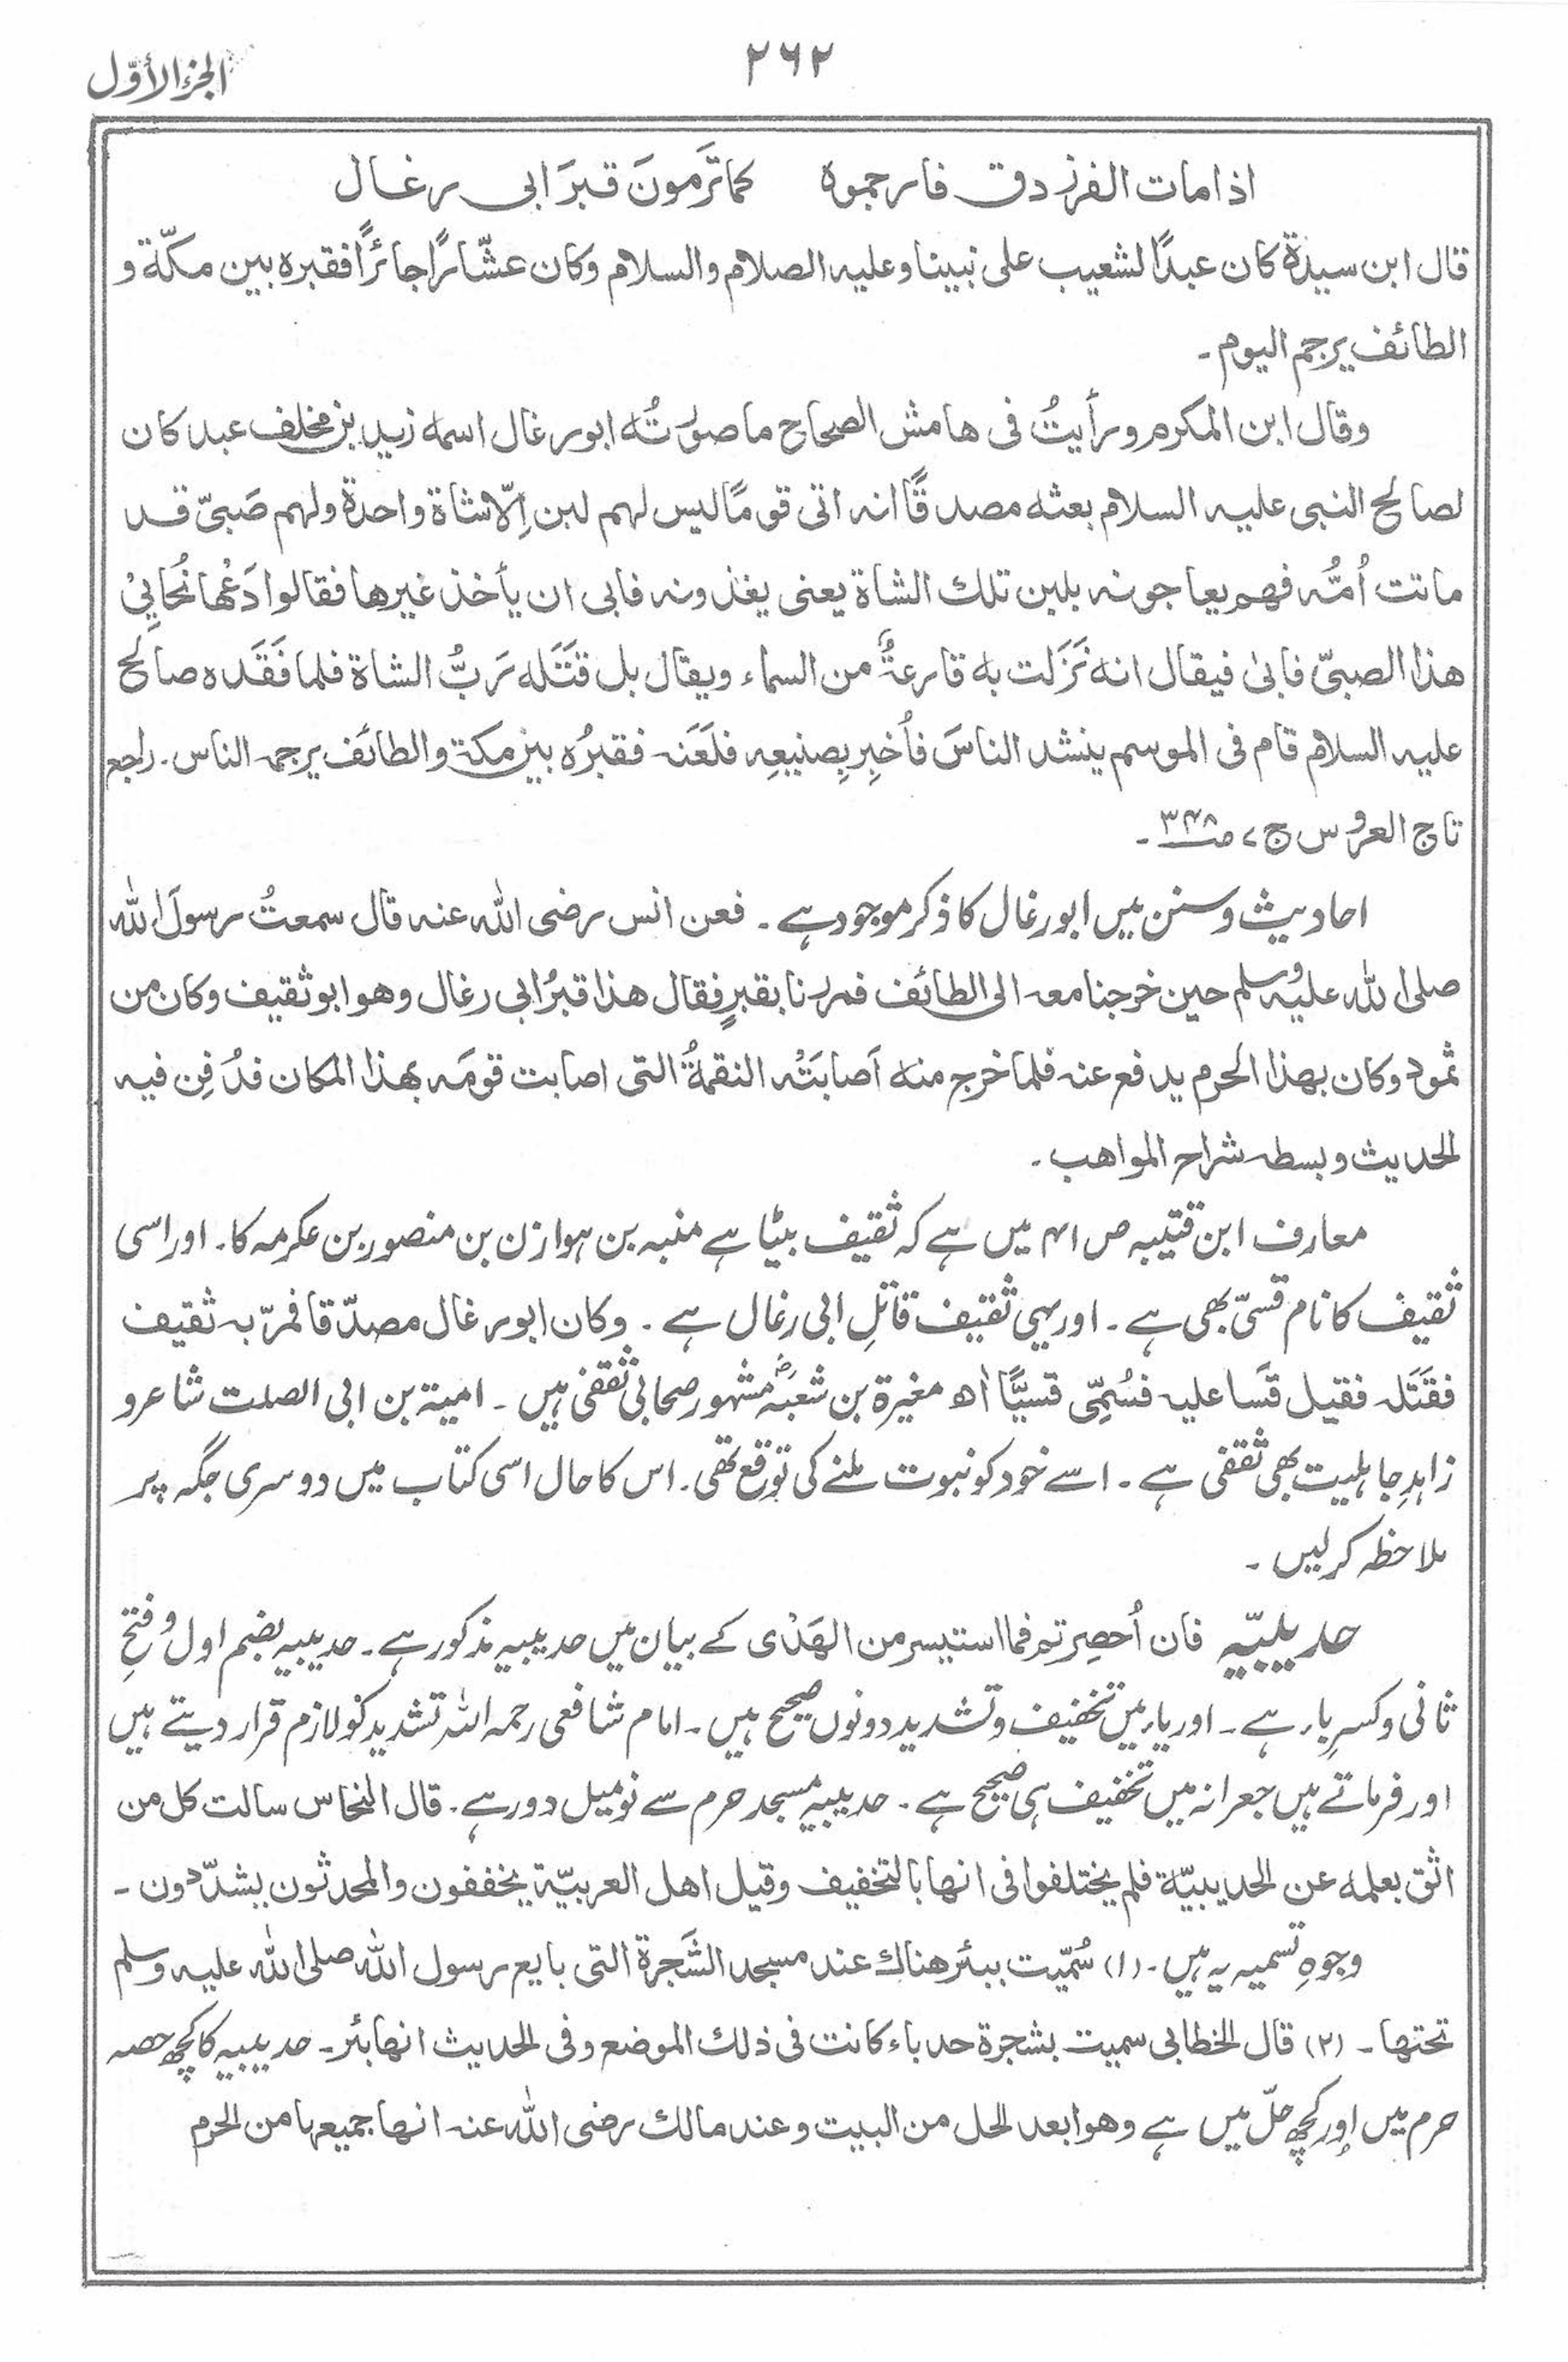 الجزء الأوّل
۲۶۲
اذا مات الفرزدق فارجموہ کما تَرمونَ قبرَ ابی رغال
قال ابن سیدۃ کان عبدًا لشعیب علی نبینا وعلیہ الصلام والسلام وکان عشّارًا جائرًا فقبرہ بین مکّۃ و
الطائف یرجم الیوم۔
وقال ابن المکرم ورأیتُ فی ھامش الصحاح ما صورتُہ ابورغال اسمہ زید بن مخلف عبد کان
لصالح النبی علیہ السلام بعثہ مصدقًا انہ اتی قومًا لیس لھم لبن اِلّا شاۃ واحدۃ ولھم صَبیّ قد
ماتت اُمُّہ فھم یعاجونہ بلبن تلك الشاۃ یعنی یغذونہ فابی ان یأخذ غیرھا فقالوا دَعْھا نُحایِیْ
ھذا الصبیّ فابیٰ فیقال انہ نَزَلت بہ قارعۃٌ من السماء ویقال بل قَتَلہ رَبُّ الشاۃ فلما فَقَدہ صالح
علیہ السلام قام فی الموسم ینشد الناسَ فاُخبِر بِصنیعِہ فلَعَنہ فقبرُہ بین مکۃ والطائف یرجمہ الناس۔ راجع
تاج العروس ج ۷ ص ۳۴۸۔
احادیث وسنن میں ابورغال کا ذکر موجود ہے۔ فعن انس رضی اللہ عنہ قال سمعتُ رسولَ اللہ
صلی اللہ علیہ وسلم حین خرجنا معہ الی الطائف فمررنا بقبرٍ فقال ھذا قبرُ ابی رغال وھو ابو ثقیف وکان من
ثمود وکان بھذا الحرم یدفع عنہ فلما خرج منہ اَصابَتْہ النقمۃُ التی اصابت قومَہ بھذا المکان فدُفِن فیہ
الحدیث وبسطہ شراح المواھب۔
معارف ابن قتیبہ ص ۴۱ میں ہے کہ ثقیف بیٹا ہے منبہ بن ہوازن بن منصور بن عکرمہ کا۔ اور اسی
ثقیف کا نام قسیّ بھی ہے۔ اور یہی ثقیف قاتلِ ابی رغال ہے۔ وکان ابورغال مصدّقا فمرّ بہ ثقیف
فقَتَلہ فقیل قسَا علیہ فسُمِّی قسیًّا اھ مغیرۃ بن شعبہؓ مشہور صحابی ثقفی ہیں۔ امیۃ بن ابی الصلت شاعر و
زاہدِ جاہلیت بھی ثقفی ہے۔ اسے خود کو نبوت ملنے کی توقع تھی۔ اس کا حال اسی کتاب میں دوسری جگہ پر
ملاحظہ کرلیں۔
حدیبیّہ فان اُحصِرتم فما استیسر من الھَدْی کے بیان میں حدیبیہ مذکور ہے۔ حدیبیہ بضم اول وفتحِ
ثانی وکسرِ باء ہے۔ اور یاء میں تخفیف وتشدید دونوں صحیح ہیں۔ امام شافعی رحمہ اللہ تشدید کو لازم قرار دیتے ہیں
اور فرماتے ہیں جعرانہ میں تخفیف ہی صحیح ہے۔ حدیبیہ مسجد حرم سے نو میل دور ہے۔ قال النحاس سالت کل من
اثق بعلمہ عن الحدیبیّۃ فلم یختلفوا فی انھا بالتخفیف وقیل اھل العربیّۃ یخففون والمحدثون یشدّدون۔
وجوہِ تسمیہ یہ ہیں۔ (۱) سُمّیت ببئر ھناك عند مسجد الشَجرۃ التی بایع رسول اللہ صلی اللہ علیہ وسلم
تحتھا۔ (۲) قال الخطابی سمیت بشجرۃ حدباء کانت فی ذلك الموضع وفی الحدیث انھا بئر۔ حدیبیہ کا کچھ حصہ
حرم میں اور کچھ حلّ میں ہے وھو ابعد الحل من البیت وعند مالك رضی اللہ عنہ انھا جمیعہا من الحرم